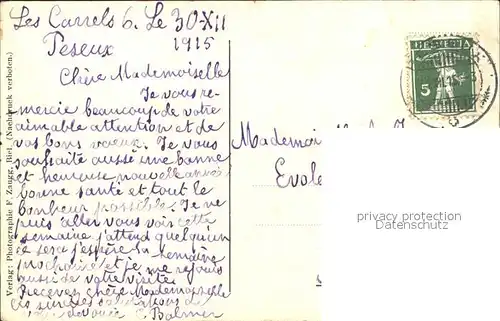 Les Carrels 6. Le 30-XII
Peseux 1915
Chère Mademoiselle
Je vous re-
mercie beaucoup de votre
aimable attention et de
vos bons voeux. Je vous
souhaite aussi une bonne
et heureuse nouvelle année
bonne santé et tout le
bonheur possible. Je ne
puis aller vous voir cette
semaine j'attend quelqu'un
ce sera j'espère la semaine
prochaine et je me rejouis
aussi de votre visite.
Recevez chère Mademoiselle
salutations de
C. Balmer
Verlag: Photographie F. Zaugg, Biel. (Nachdruck verboten.)
HELVETIA
5
Mademoi
Evole
privacy protection
Datenschutz